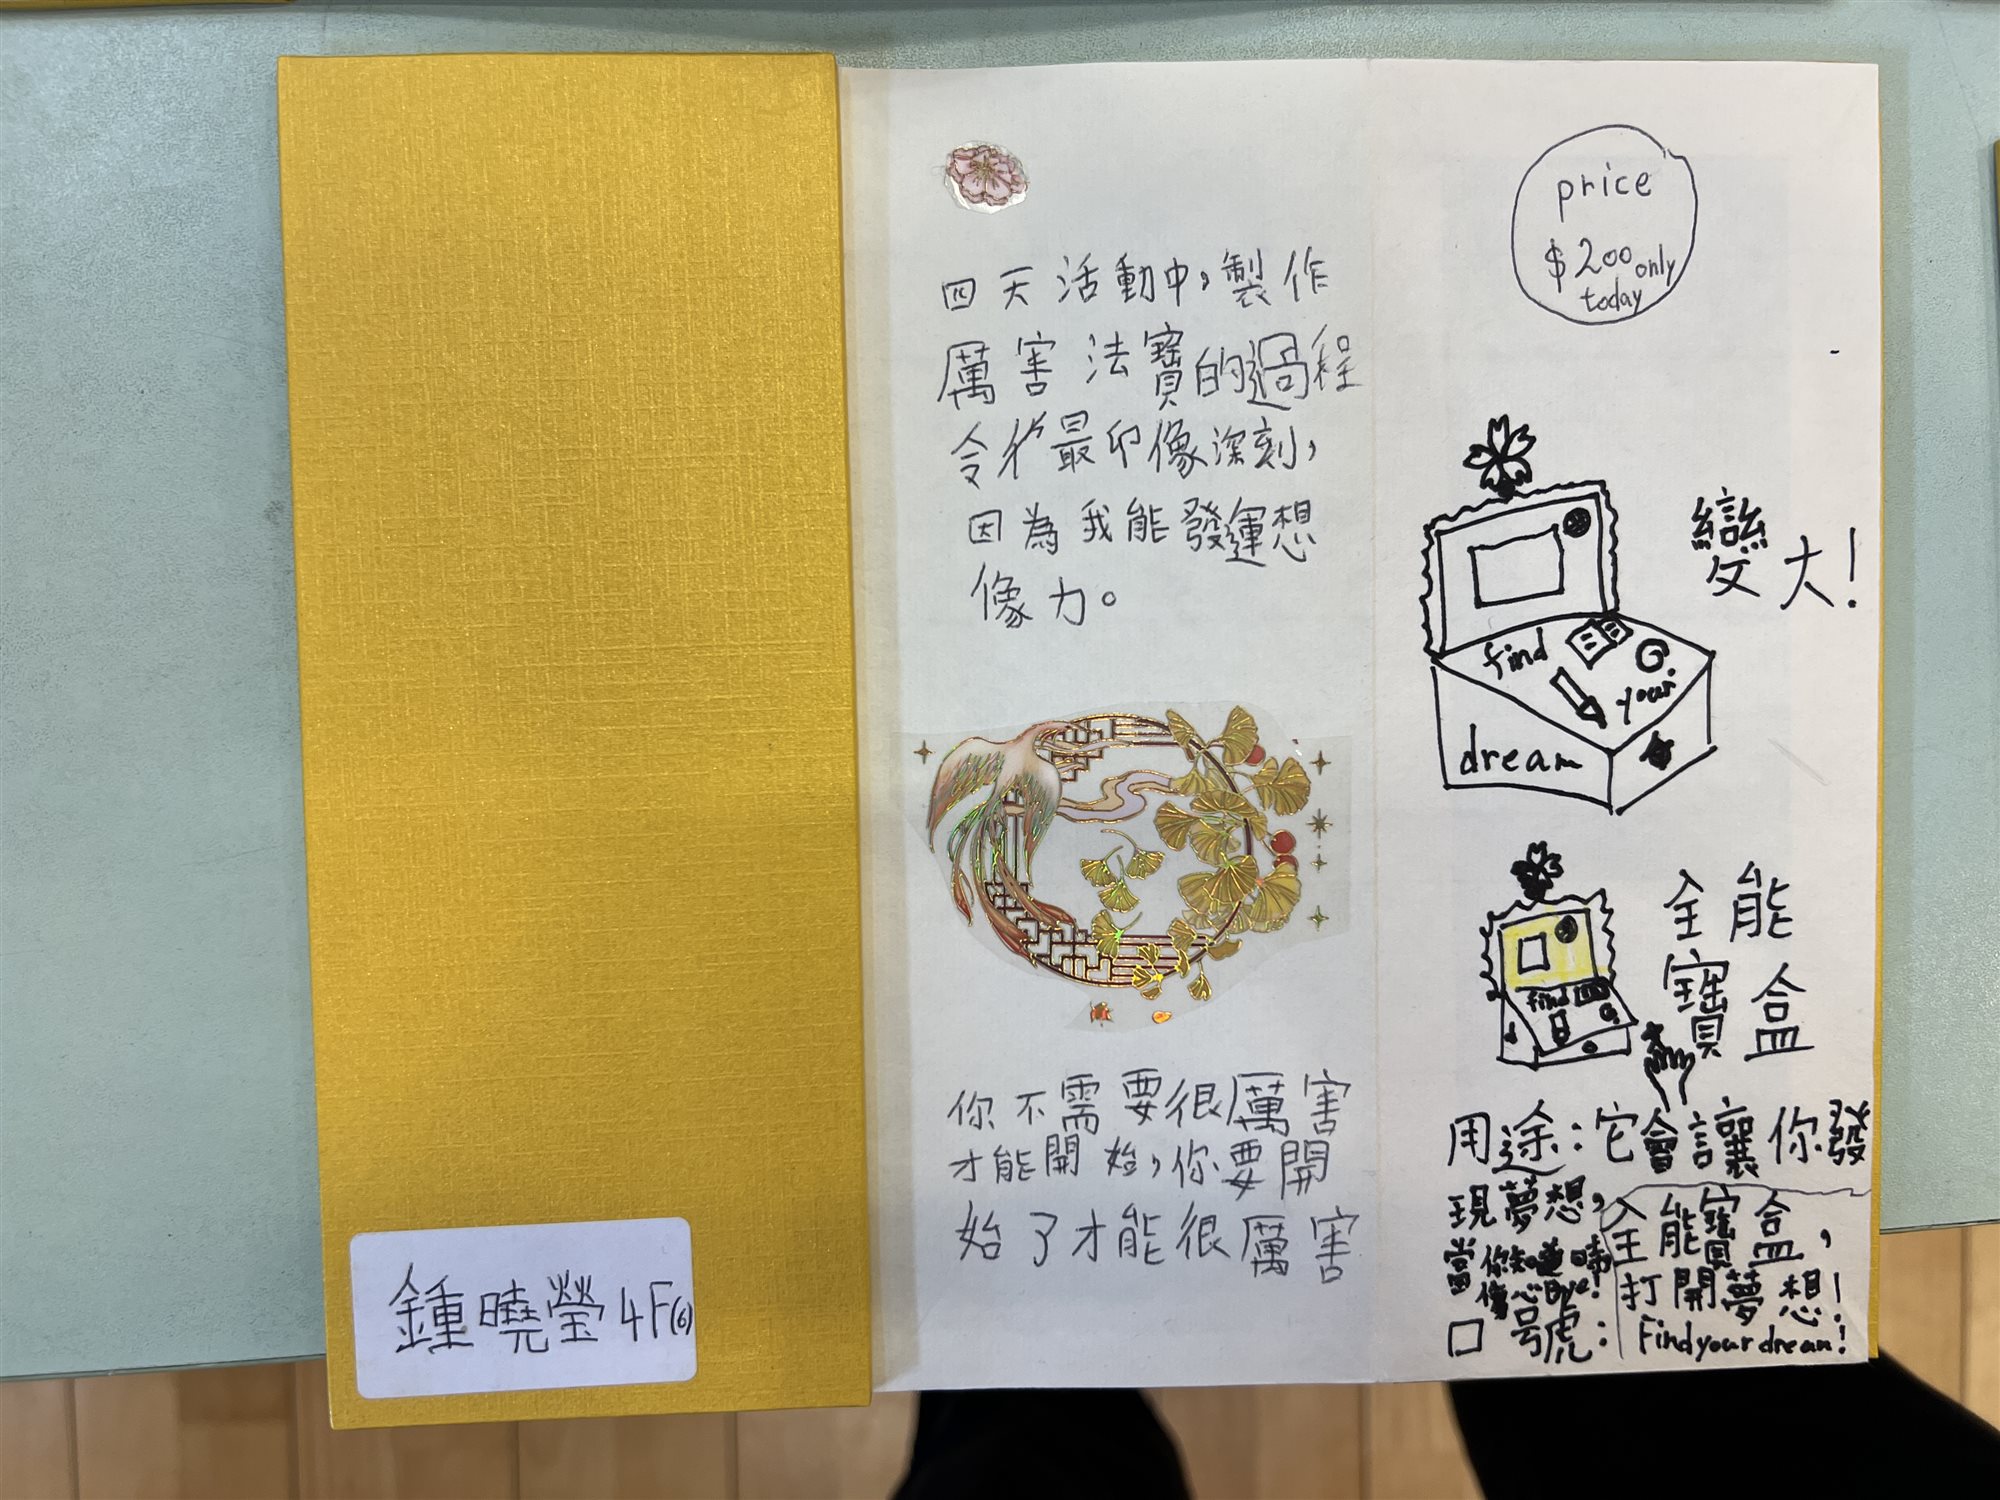 鍾曉瑩 4F(6)
四天活動中，製作
厲害法寶的過程
令我最印像深刻，
因為我能發運想
像力。
你不需要很厲害
才能開始，你要開
始了才能很厲害
price
$200 only
today
變大！
find
your
dream
全能
寶盒
find
用途：它會讓你發
現夢想，
當你知道時
傷心Bye!
口號：
全能寶盒，
打開夢想！
Find your dream!